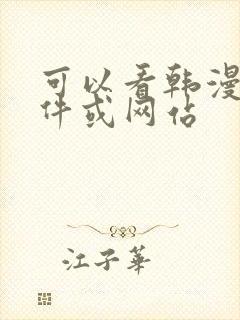 可以看韩漫
件或网站
江子華